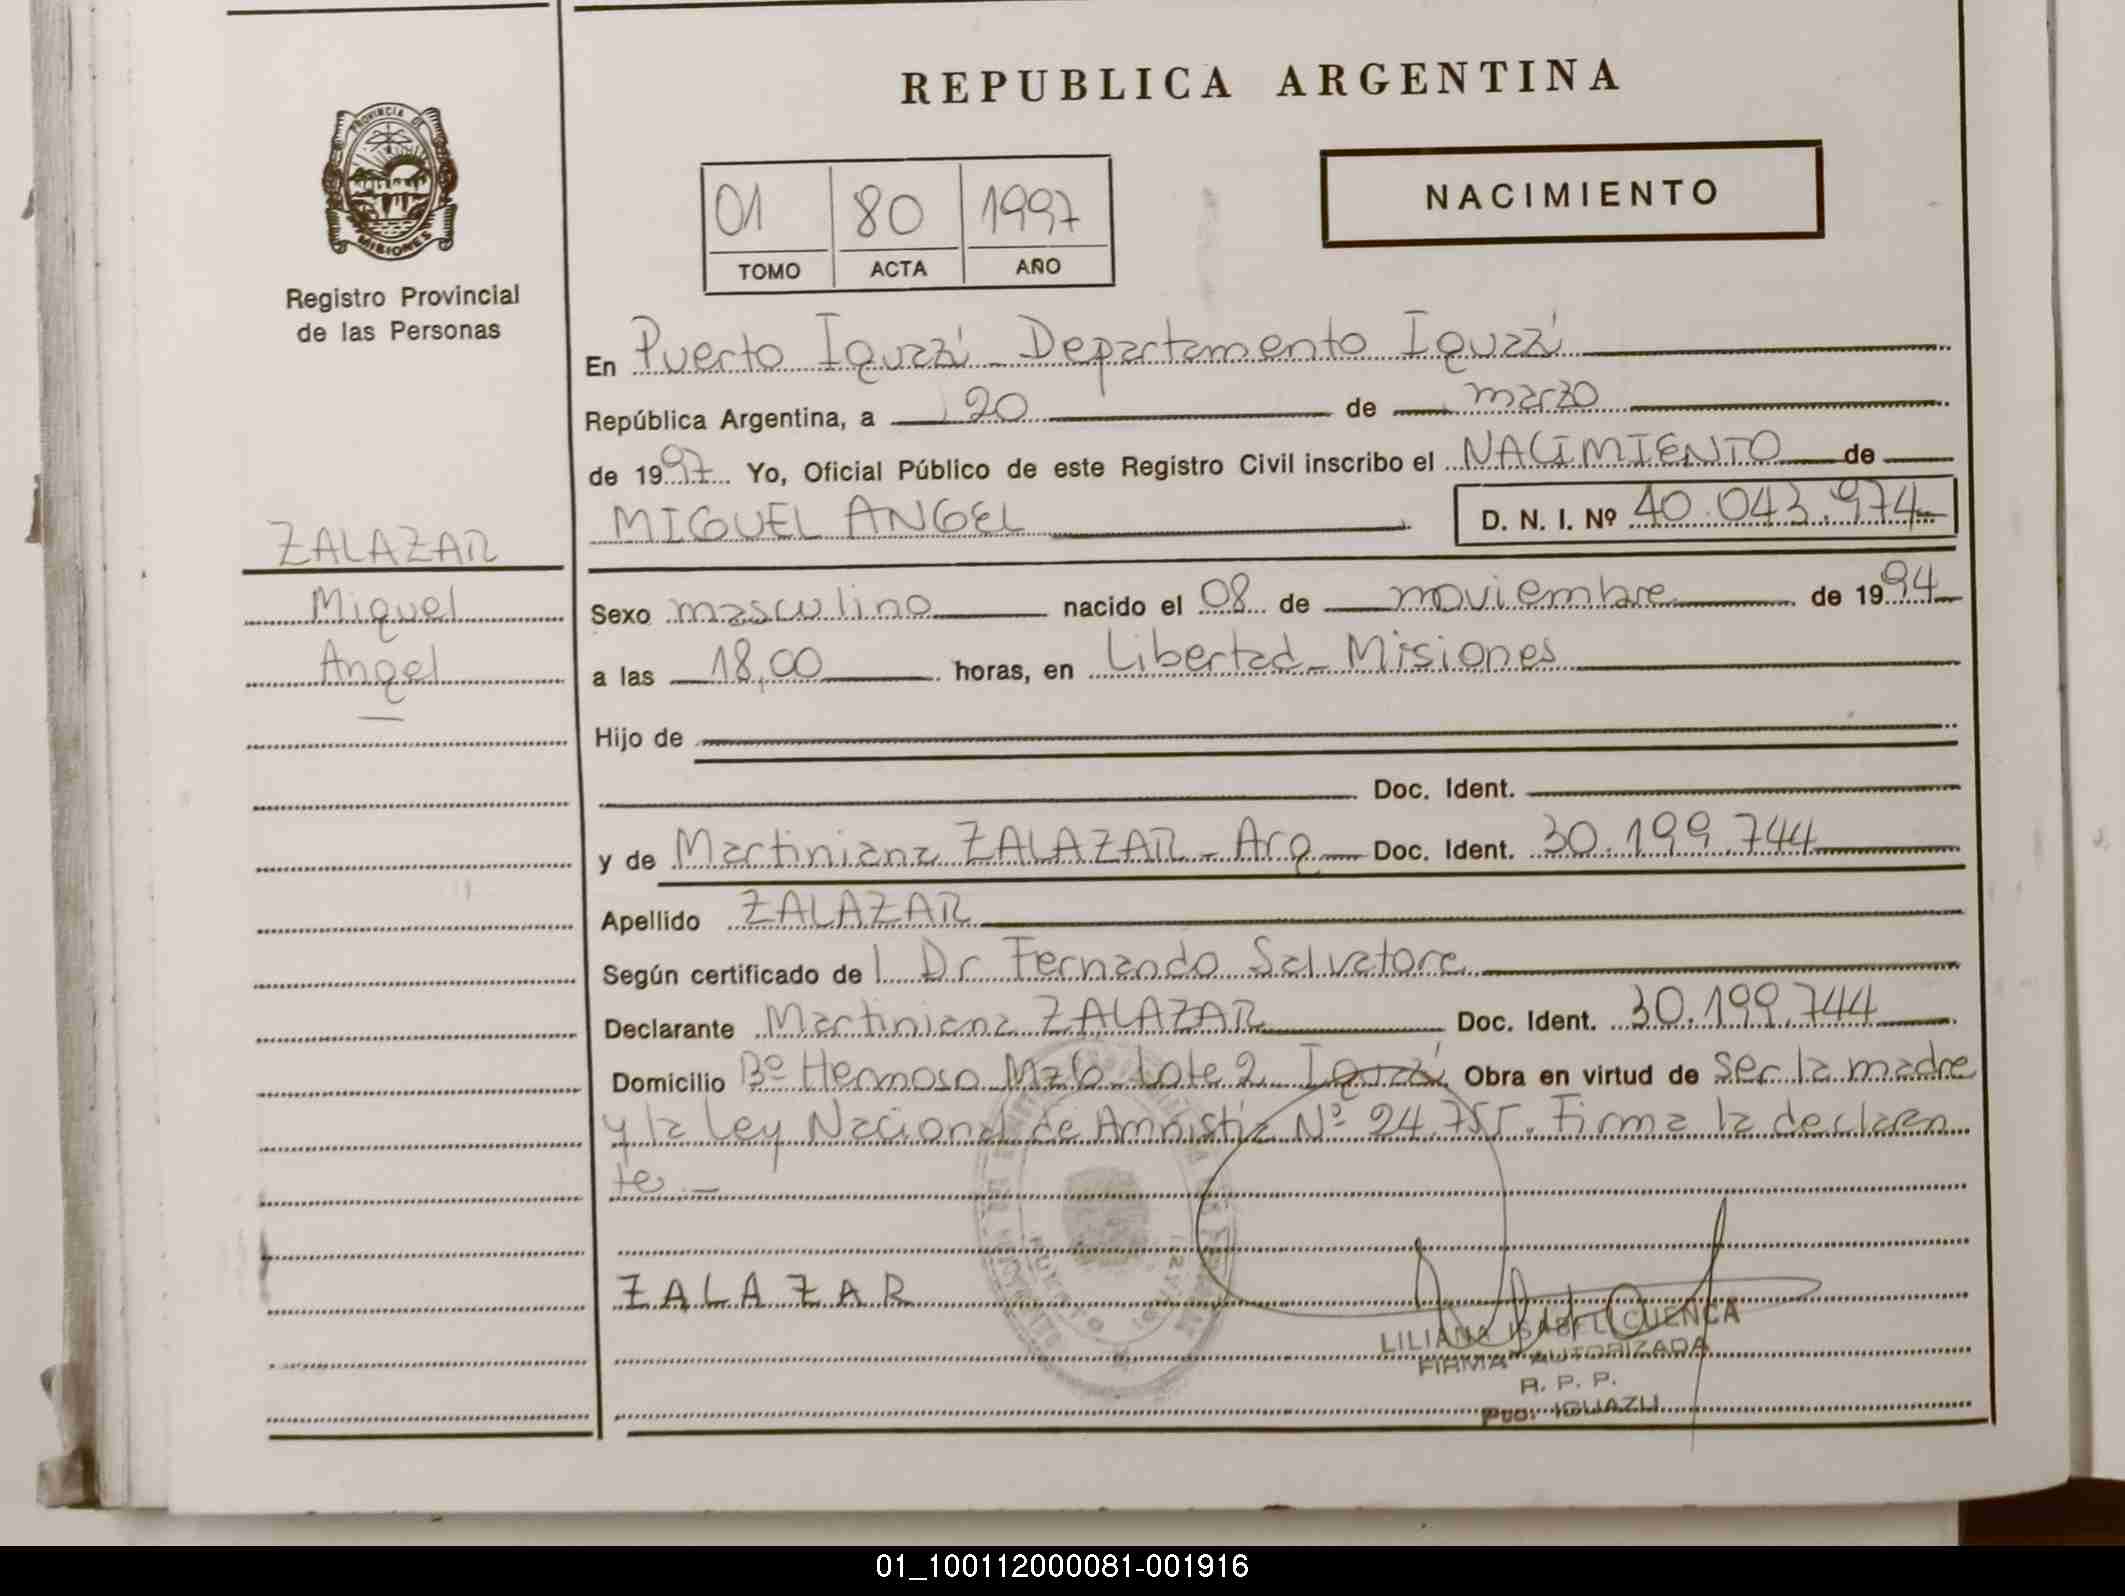 REPUBLICA ARGENTINA
PROVINCIA DE
MISIONES
Registro Provincial
de las Personas
01 80 1997
TOMO ACTA AÑO
NACIMIENTO
En Puerto Iguazú - Departamento Iguazú
República Argentina, a 20 de marzo
de 1997. Yo, Oficial Público de este Registro Civil inscribo el NACIMIENTO de
MIGUEL ANGEL D. N. I. Nº 40.043.974
ZALAZAR
Miguel
Angel
Sexo masculino nacido el 08 de noviembre de 1994
a las 18,00 horas, en Libertad - Misiones
Hijo de
Doc. Ident.
y de Martiniana ZALAZAR - Arg Doc. Ident. 30.199.744
Apellido ZALAZAR
Según certificado de l Dr Fernando Salvatore
Declarante Martiniana ZALAZAR Doc. Ident. 30.199.744
Domicilio Bº Hermoso Lote 2 Iguazú Obra en virtud de ser la madre
y la Ley Nacional de Amnistía Nº 24.755. Firma la declaran
te. -
ZALAZAR
LILIANA ISABEL CUENCA
FIRMA AUTORIZADA
R. P. P.
Pto. IGUAZU
01_100112000081-001916